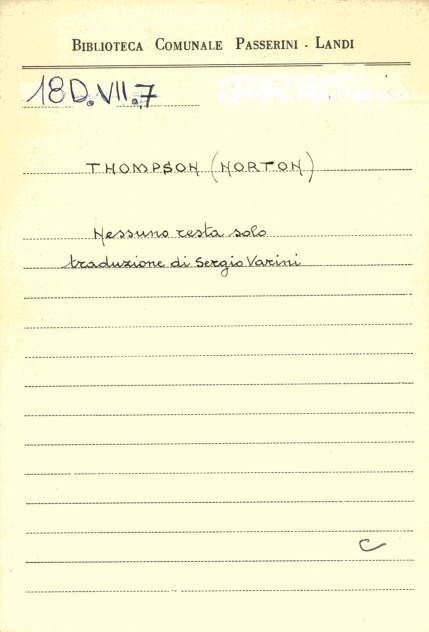 BIBLIOTECA COMUNALE PASSERINI - LANDI
18D.VII.7
THOMPSON (NORTON)
Nessuno resta solo
traduzione di Sergio Varini
C